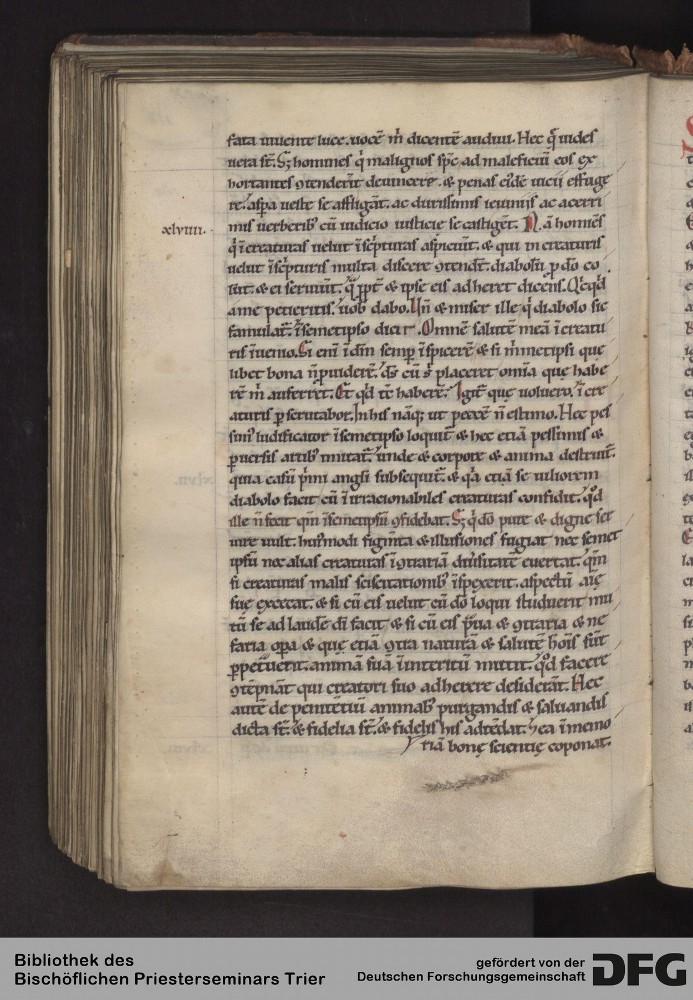 fata uiuente luce. uocē m̄ dicentē audiui. Hec q̄ uides
uera st̄. S; homines q̇ malignos sp̄c ad maleficiū eos ex
hortantes ɔtenderīt deuincere. & penas eiꝰdē uicii effuge
re. aspa ueste se affligāt. ac durissimis ieiuniis ac acerri
xlviiii. mis uerberib; cū iudicio iusticie se castigēt. N ā homīes
q̇ ī creaturas uelut ī sc̄pturas aspiciūt. & qui in creaturis
uelut ī sc̄pturis multa discere ɔtendt̄. diabolū p dō co
lūt. & ei seruiūt. q̄ ppt̄ & ipse eis adheret dicens. Qcqd̄
a me petieritis. uob dabo. Vn̄ & miser ille q̇ diabolo sic
famulat̄. ī semetipso dicit. Omnē salutē meā ī creatu
ris īuenio. Si enī ī dm̄ semp īspicerē & si m̄metipsi quę
libet bona n̄ puiderē. ds̄ cū s̄ placeret omīa quę habe
rē m̄ auferret. Et qd̄ tē haberē? Igit̄ quę uoluero. ī cre
aturis pscrutabor. In his nāq; ut peccē n̄ estimo. Hec pes
simꝰ ludificator ī semetipso loquit̄ & hec etiā pessimis &
puersis artib; imitat̄. unde & corpore & anima destruit̄.
quia casū pꝰmi angli subsequit̄. & qa etiā se uiliorem
diabolo facit cū ī irracionabiles creaturas confidit. qd̄
ille n̄ fecit qm̄ ī semetipsū ɔfidebat. S; q̇ dō pure & digne ser
uire uult. huꝰmodi figm̄ta & illusiones fugiat nec semet
ipsū nec alias creaturas ī ɔtrariā diuꝰsitatē euertat. qm̄
si creaturas malis sciscitationib; īspexerit. aspectū aīę
suę excecat. & si cū eis uelut cū dō loqui studuerit mu
tū se ad laudē dī facit & si cū eis pꝰua & ɔtraria & ne
faria opa & quę etiā ɔtra naturā & salutē hoīs sūt
ppetuerit. animā suā ī interitū mittit. qd̄ facere
ɔtēpnāt qui creatori suo adherere desiderāt. Hec
autē de penitētiū animab; purgandis & saluandis
dicta st̄. & fidelia st̄. & fidelis his adtēdat. & ea ī memo
riā bonę scientię coponat.
Bibliothek des
Bischöflichen Priesterseminars Trier
gefördert von der
Deutschen Forschungsgemeinschaft
DFG